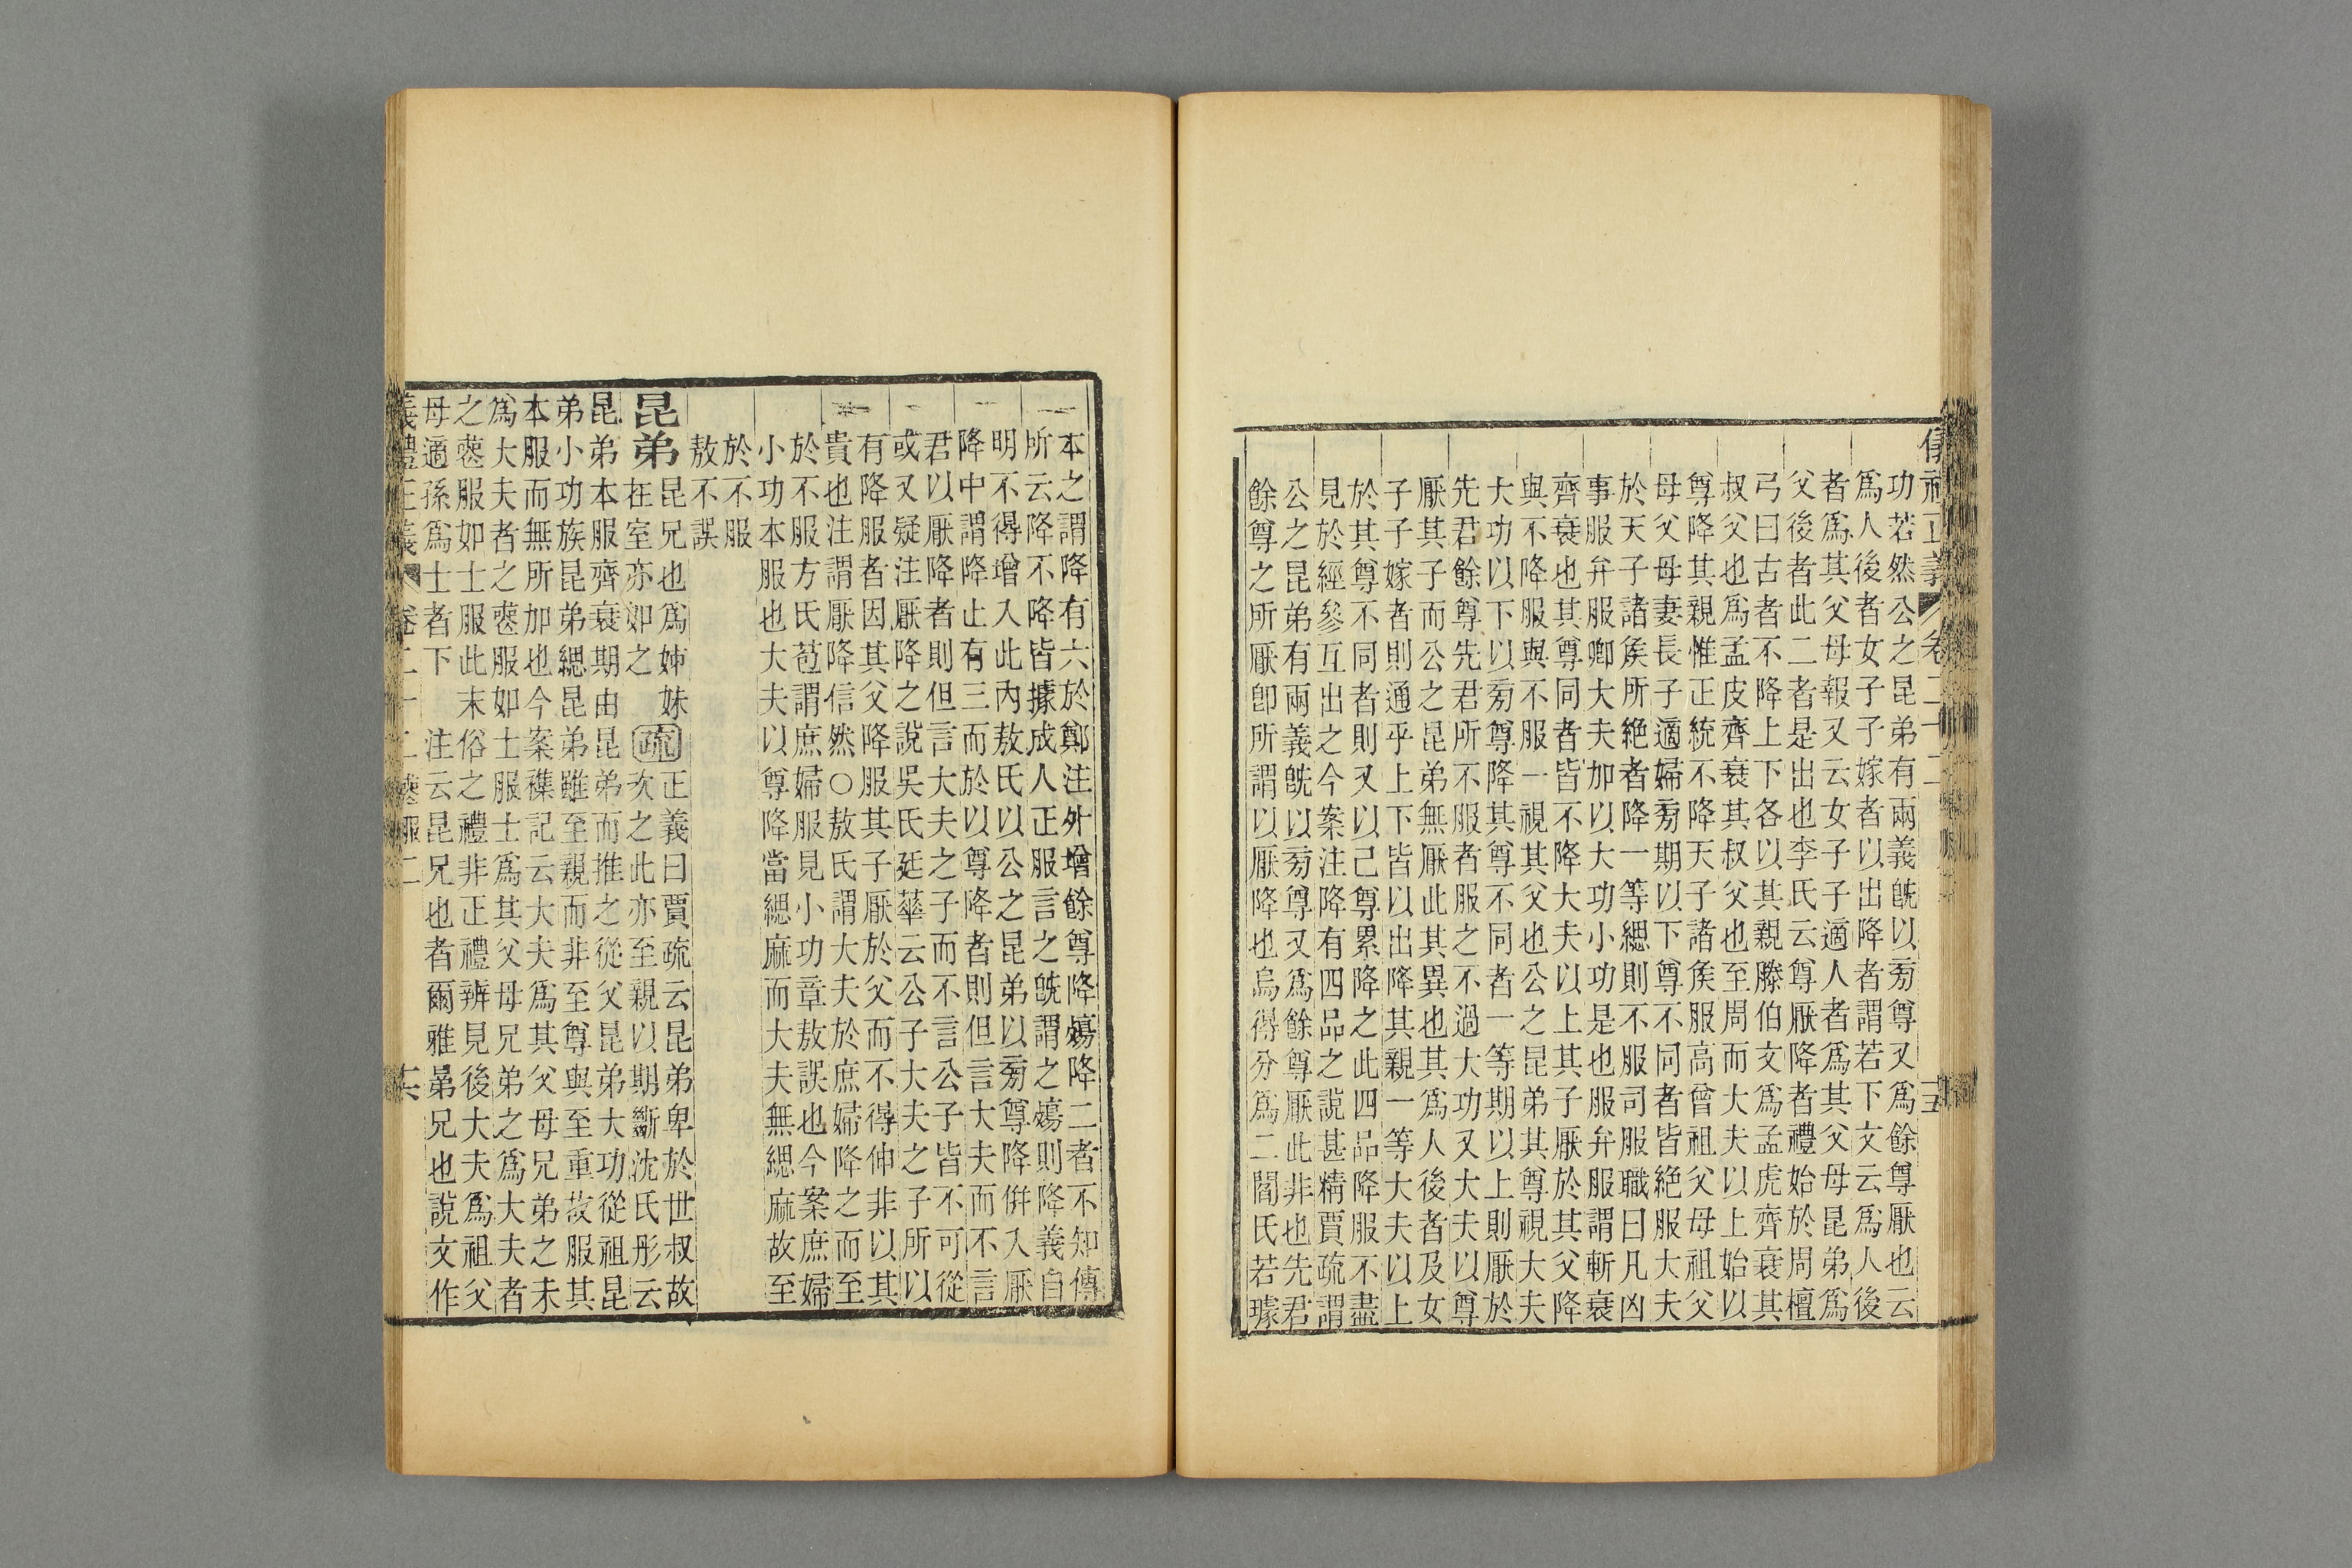 儀禮正義　卷二十二　十五
功若然公之昆弟有兩義旣以旁尊又爲餘尊厭也云
爲人後者女子子嫁者以出降者謂若下文云爲人後
者爲其父母報又云女子子適人者爲其父母昆弟爲
父後者此二者是出也李氏云尊厭降者禮始於周檀
弓曰古者不降上下各以其親滕伯文爲孟虎齊衰其
叔父也爲孟皮齊衰其叔父也至周而大夫以上始以
尊降其親惟正統不降天子諸侯服高曾祖父母祖父
母父母妻長子適婦旁期以下尊不同者皆絕服大夫
於天子諸侯所絕者降一等緦則不服司服職曰凡凶
事服弁服卿大夫加以大功小功是也服弁服謂斬衰
齊衰也其尊同者皆不降大夫以上其子厭於其父降
與不降服與不服一視其父也公之昆弟其尊視大夫
大功以下以旁尊降其尊不同者一等期以上則厭於
先君餘尊先君所不服者服之不過大功又大夫以尊
厭其子而公之昆弟無厭此其異也其爲人後者及女
子子嫁者則通乎上下皆以出降其親一等大夫以上
於其尊不同者則又以己尊累降之此四品降服不盡
見於經參互出之今案注降有四品之說甚精賈疏謂
公之昆弟有兩義旣以旁尊又爲餘尊厭此非也先君
餘尊之所厭卽所謂以厭降也烏得分爲二閻氏若璩
本之謂降有六於鄭注外增餘尊降殤降二者不知傳
所云降不降皆據成人正服言之旣謂之殤則降義自
明不得增入此內敖氏以公之昆弟以旁尊降併入厭
降中謂降止有三而於以尊降者則但言大夫而不言
君以厭降者則但言大夫之子而不言公子皆不可從
或又疑注厭降之說吳氏廷華云公子大夫之子所以
有降服者因其父降服其子厭於父而不得伸非以其
貴也注謂厭降信然○敖氏謂大夫於庶婦降之而至
於不服方氏苞謂庶婦服見小功章敖誤也今案庶婦
小功本服也大夫以尊降當緦麻而大夫無緦麻故至
於不服
敖不誤
昆弟
昆兄也爲姊妹
在室亦如之
疏
正義曰賈疏云昆弟卑於世叔故
次之此亦至親以期斷沈氏彤云
昆弟本服齊衰期由昆弟而推之從父昆弟大功從祖昆
弟小功族昆弟緦昆弟雖至親而非至尊與至重故服其
本服而無所加也今案襍記云大夫爲其父母兄弟之未
爲大夫者之喪服如士服士爲其父母兄弟之爲大夫者
之喪服如士服此末俗之禮非正禮辨見後大夫爲祖父
母適孫爲士者下　注云昆兄也者爾雅晜兄也說文作
義禮正義　卷二十二　喪服二　十六